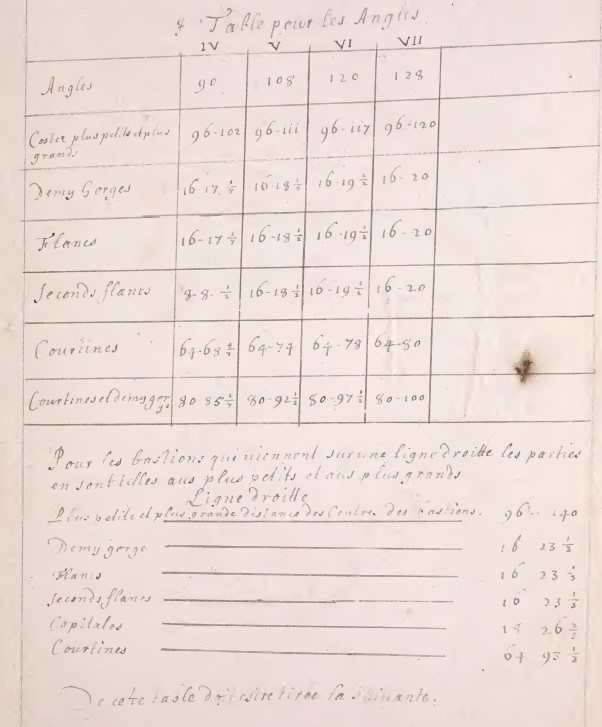 Table pour les Angles.
IV V VI VII
Angles 90 108 120 128
Costez plus petits et plus grands 96-102 96-111 96-117 96-120
Demy Gorges 16-17 16-18 1/2 16-19 1/2 16-20
Flancs 16-17 16-18 1/2 16-19 1/2 16-20
Seconds flancs 8-8 1/2 16-18 1/2 16-19 1/2 16-20
Courtines 64-68 64-74 64-78 64-80
Courtines et demy gorge 80 85 80-92 1/2 80-97 1/2 80-100
Pour les bastions qui viennent sur une ligne droitte les parties
en sont icelles aus plus petits et aus plus grands
Ligne droitte
Plus petite et plus grande distance des Centres des bastions. 96 - 140
Demy gorge 16 23 1/3
Flancs 16 23 1/3
Seconds flancs 16 23 1/3
Capitales 18 26
Courtines 64 93 1/3
De cette table doit estre tirée la suivante.